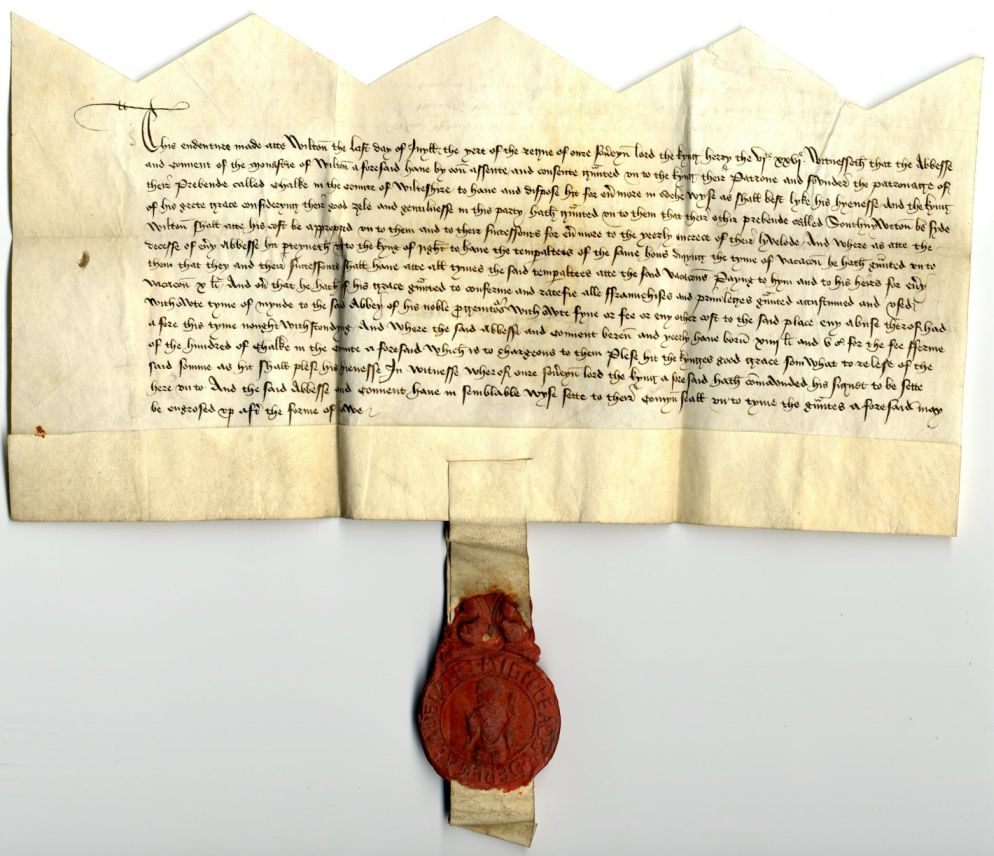 This endenture made atte Wilton the last day of Juyll, the yere of the regne of oure sov'eyn lord the kyng herry the vjte xxvjti Witnesseth that the Abbesse
and Couent of the monastrie of Wilton a foresaid haue by oon assente and consente g'unted vn to the kyng their Patrone and ffounder the patronage of
their Prebende called Chalke in the Counte of Wilteshire to haue and dispose hit for eu'more in suche wyse as shall best lyke his hyenesse And the kyng
of his grete grace consideryng their good zele and gentiliesse in this party hath g'unted vn to them that their othir prebende called
Wilton shall atte his cost be appropred vn to them and to their successours for eu'more to the yerely increce of their lyvelode And where as atte the
decesse of eu'y abbesse hit p'teyneth vnto the kyng of right to haue the tempaltees of the same hous duryng the tyme of vacacon he hath g'unted vn to
them that they and their successours shall haue atte all tymes the said tempaltees atte the said vacacons Payng to hym and to his heirs for eu'y
vacacon x li And ou' that he hath of his grace g'unted to conferme and ratefie alle ffraunchises and priuileges g'unted accustumed and vsed
withowte tyme of mynde to the said Abbey of his noble p'genitours withowte fyne or fee or eny other cost to the said place eny abuse therof had
a fore this tyme nought withstondyng And where the said abbesse and Couent beren and yeerly haue born xiiij li and v s for the fee fferme
of the hundred of Chalke in the Counte a foresaid which is to chargeous to them Plese hit the kynges good grace somwhat to relese of the
said somme as hit shall plese his hienesse In witnesse wherof oure sou'eyn lord the kyng a fore said hath comaunded his signet to be sette
here vn to And the said Abbesse and Couent haue in semblable wyse sette to their Comyn seall vn to tyme the g'untes a foresaid may
be engrosed vp aft' the forme of lawe